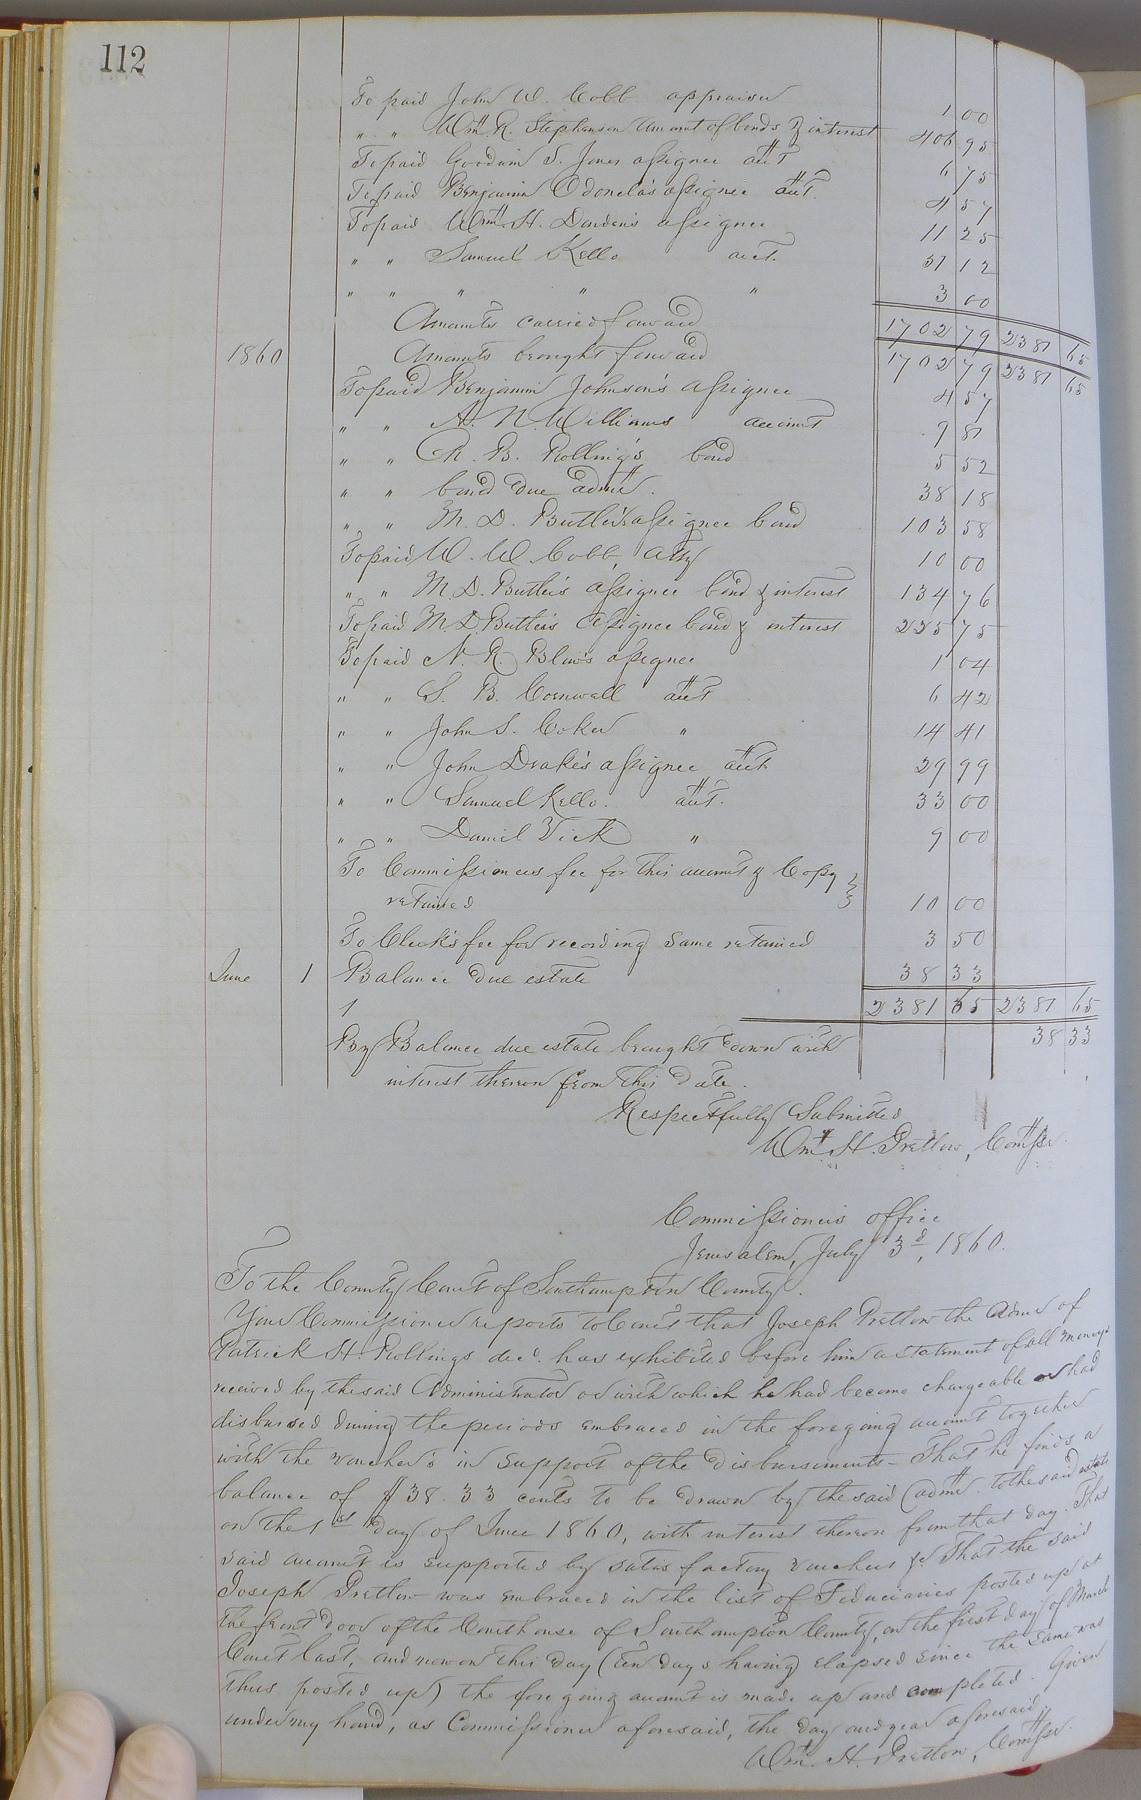 112
To paid John W. Cobb appraiser 1 00
" " Wm. R. Stephenson Amount of bonds & interest 406 95
To paid Goodwin S. Jones assignee act 6 75
To paid Benjamin Odonela's assignee act. 4 57
To paid Wm. H. Darden's assignee 11 25
" " Samuel Kello act. 37 12
" " " " " 3 00
Amounts carried forward 1702 79 2381 65
1860 Amounts brought forward 1702 79 2381 65
To paid Benjamin Johnson's assignee 4 57
" " A. N. Williams account 9 81
" " R. B. Rolling's bond 5 52
" " bond due admr. 38 18
" " M. D. Butler's assignee bond 103 58
To paid W. W. Cobb, Atty 10 00
" " M. D. Butler's assignee bond & interest 134 76
To paid M. D. Butler's assignee bond & interest 225 75
To paid N. R. Blow's assignee 1 04
" " S. B. Cornwell act 6 42
" " John S. Coker " 14 41
" " John Drake's assignee act 29 99
" " Samuel Kello. act. 33 00
" " Daniel Vick " 9 00
To Commissioners fee for this account & Copy
retained 10 00
To Clerk's fee for recording same retained 3 50
June 1 Balance due estate 38 33
1 2381 65 2381 65
By Balance due estate brought down with 38 33
interest thereon from this date.
Respectfully Submitted
Wm. H. Pretlow, Comsr.
Commissioner's office
Jerusalem, July 3d, 1860.
To the County Court of Southampton County.
Your Commissioner reports to Court that Joseph Pretlow the Admr of
Patrick H. Rollings decd. has exhibited before him a statement of all moneys
received by the said Administrator or with which he had become chargeable or had
disbursed during the periods embraced in the foregoing account together
with the voucher's in support of the disbursements - That he finds a
balance of $38.33 cents to be drawn by the said admr. to the said estate
on the 1st day of June 1860, with interest thereon from that day. That
said account is supported by satisfactory vouchers & That the said
Joseph Pretlow was embraced in the list of Fiduciaries posted up at
the front door of the Courthouse of Southampton County, on the first day of March
Court last, and now on this day (ten days having elapsed since the same was
thus posted up) the foregoing account is made up and completed. Given
under my hand, as Commissioner aforesaid, the day and year aforesaid,
Wm. H. Pretlow, Comsr.